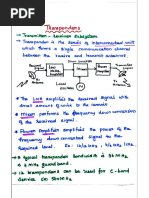 Transponders
→ Transmitter - Receiver Subsystem.
→ Transponder is the series of interconnected unit
which forms a single communication channel
between the receive and transmit antennas.
Mixer
Power
→ The LNA amplifies the received signal with
small amount of noise to the next
→ Mixer performs the frequency down conversion
of the received signal.
→ Power Amplifier amplifies the power of the
frequency down converted signal to the
required level.
→ Typical transponder bandwidth is 36 MHz
→ 12 transponders can be used for C-band
service in 500MHz